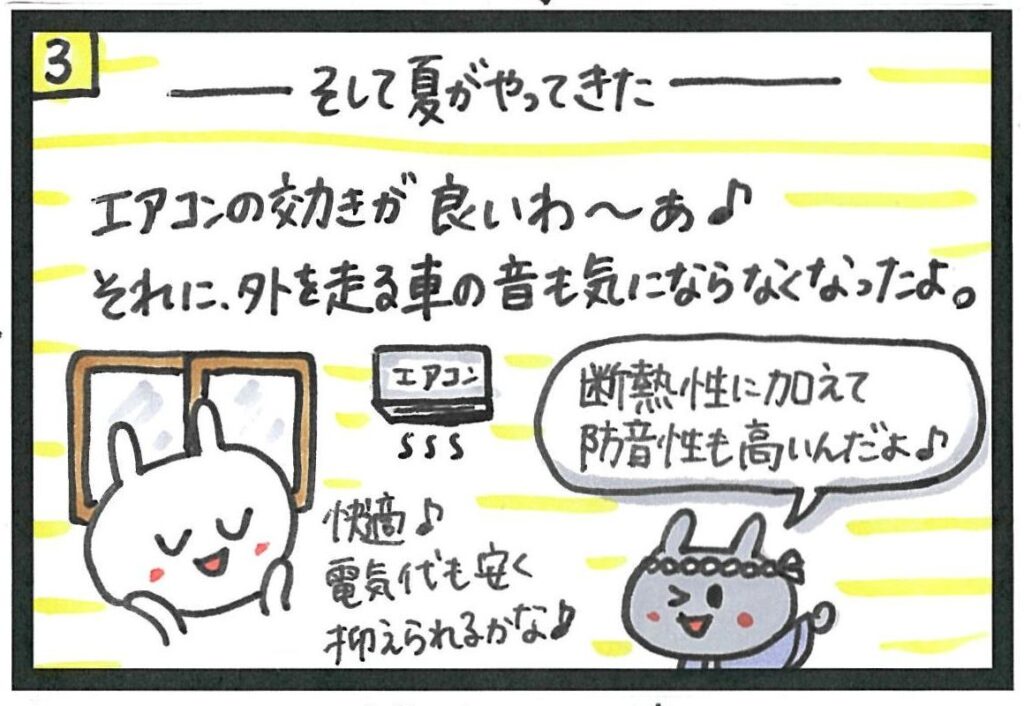 3
そして夏がやってきた
エアコンの効きが良いわ～ぁ♪
それに、外を走る車の音も気にならなくなったよ。
エアコン
断熱性に加えて
防音性も高いんだよ♪
快適♪
電気代も安く
抑えられるかな♪